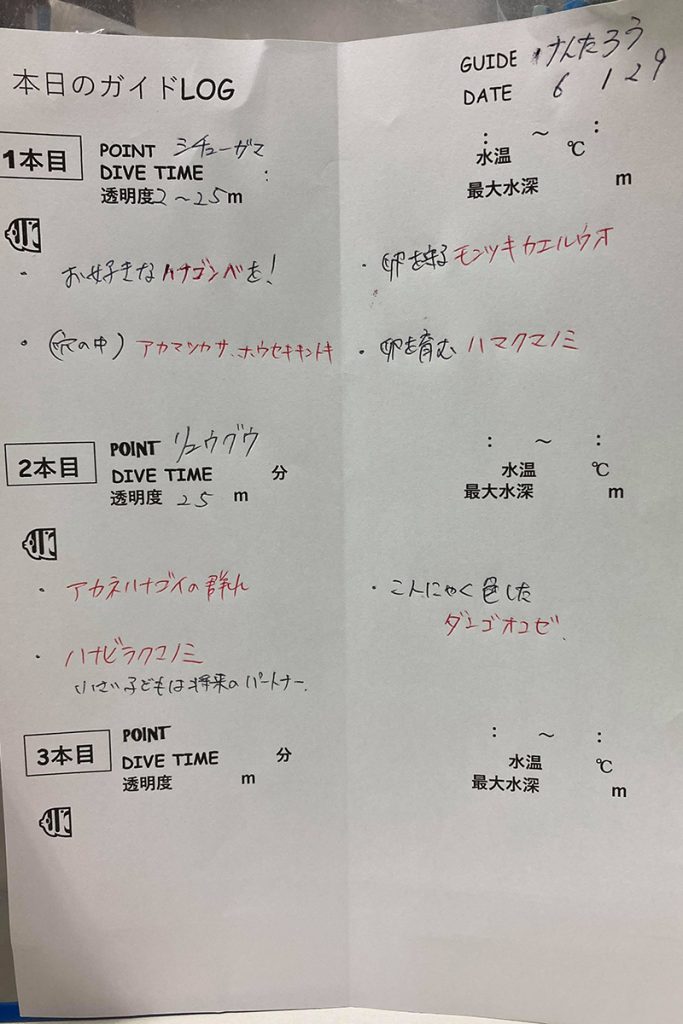 本日のガイドLOG
GUIDE けんたろう
DATE 6 1 29
1本目
POINT シチューガマ
DIVE TIME :
透明度 2～25m
: ～ :
水温 ℃
最大水深 m
・お好きなハナゴンベを!
・(穴の中) アカマツカサ、ホウセキキントキ
・卵を守るモンツキカエルウオ
・卵を育む ハマクマノミ
2本目
POINT リュウグウ
DIVE TIME 分
透明度 25 m
: ～ :
水温 ℃
最大水深 m
・アカネハナゴイの群れ
・ハナビラクマノミ
小さい子どもは将来のパートナー.
・こんにゃく色した
ダンゴオコゼ.
3本目
POINT
DIVE TIME 分
透明度 m
: ～ :
水温 ℃
最大水深 m